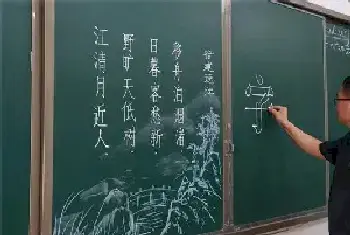 宿建德江
移舟泊烟渚
日暮客愁新
野旷天低树
江清月近人